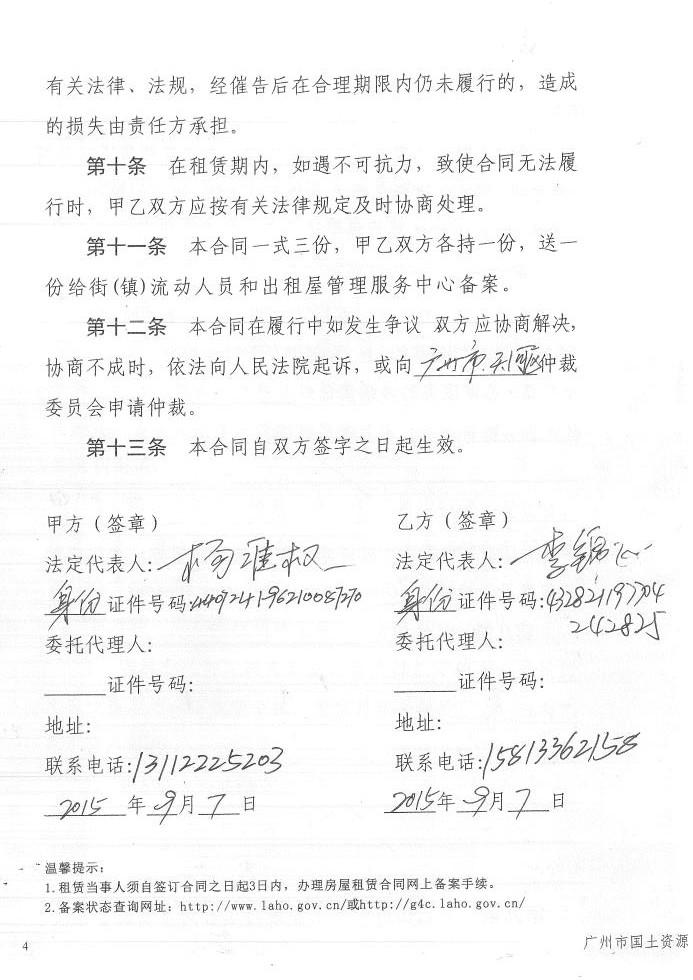 有关法律、法规，经催告后在合理期限内仍未履行的，造成
的损失由责任方承担。
第十条 在租赁期内，如遇不可抗力，致使合同无法履
行时，甲乙双方应按有关法律规定及时协商处理。
第十一条 本合同一式三份，甲乙双方各持一份，送一
份给街(镇)流动人员和出租屋管理服务中心备案。
第十二条 本合同在履行中如发生争议 双方应协商解决，
协商不成时，依法向人民法院起诉，或向 广州市天河区仲裁
委员会申请仲裁。
第十三条 本合同自双方签字之日起生效。
甲方（签章）
法定代表人：杨准权
身份 证件号码：
委托代理人：
______证件号码：
地址：
联系电话：13112225203
2015 年 9 月 7 日
乙方（签章）
法定代表人：李锦
身份 证件号码：432821197704
242825
委托代理人：
______证件号码：
地址：
联系电话：15813362158
2015 年 9 月 7 日
温馨提示：
1.租赁当事人须自签订合同之日起3日内，办理房屋租赁合同网上备案手续。
2.备案状态查询网址：http://www.laho.gov.cn/或http://g4c.laho.gov.cn/
4
广州市国土资源